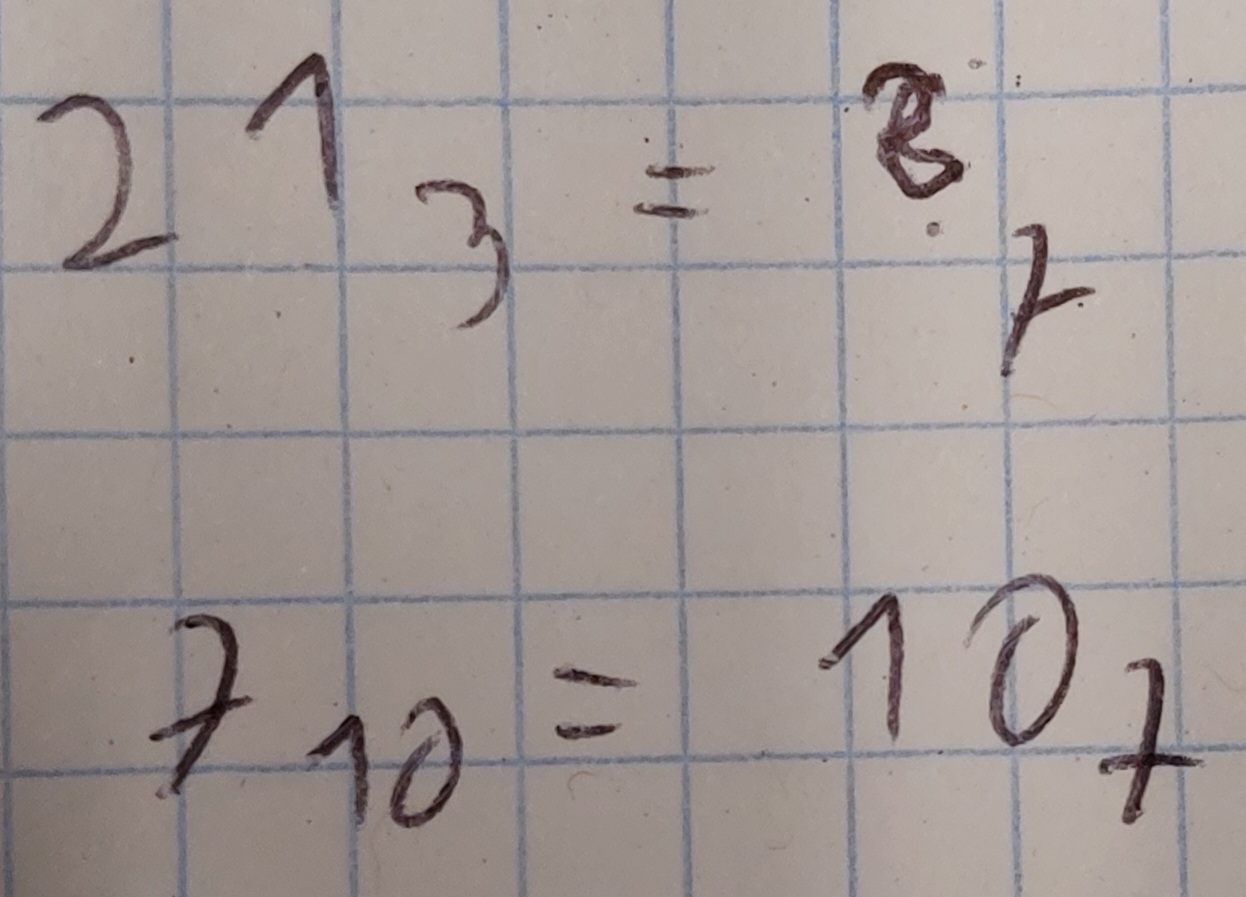 21₃ = 8₇
7₁₀ = 10₇